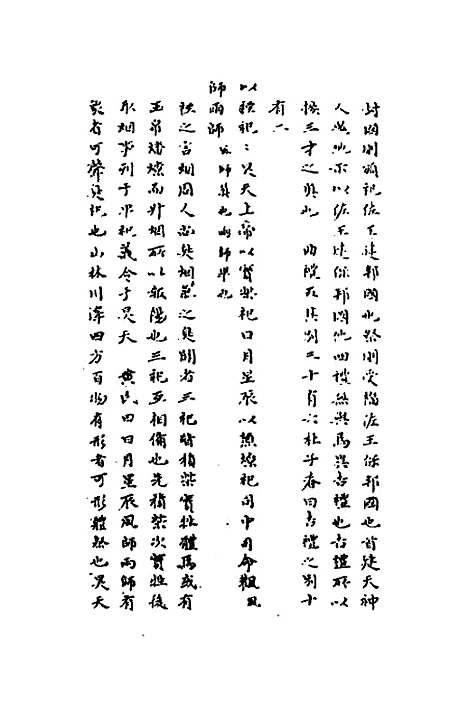 封國則頒祀佐王建邦國也祭則受福佐王保邦國也首建天神
人鬼地示以佐王建保邦國他四禮無與焉與吉禮也吉禮所以
候三才之與也 內院五其別二十有六杜子春曰吉禮之別十
有二
以禋祀祀昊天上帝以實柴祀日月星辰以槱燎祀司中司命飌
師雨師 風師箕也雨師畢也
禋之言煙周人尚臭煙氣之臭聞者三祀皆積柴實牲體焉或有
玉帛燔燎而升煙所以報陽也三祀互相備也先積柴次實牲後
取煙事列于卑祀義全于昊天 黃氏曰日月星辰風師雨師有
象者可聲臭祀也山林川澤四方百物有形者可形體祭也昊天